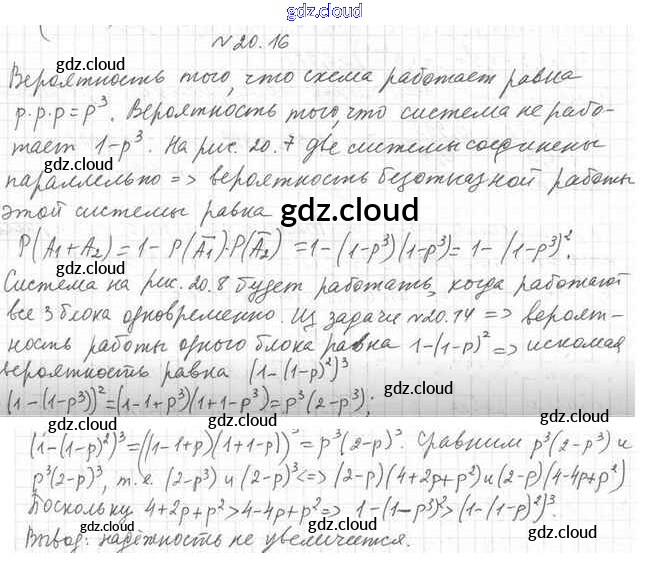 gdz.cloud
№20.16
gdz.cloud gdz.cloud
Вероятность того, что схема работает равна
p·p·p=p³. Вероятность того что система не рабо-
тает 1-p³. На рис. 20.7 две системы соединены
gdz.cloud gdz.cloud
параллельно => вероятность безотказной работы
этой системы равна
gdz.cloud
P(A₁+A₂)=1-P(A̅₁)·P(A̅₂) =1-(1-p³)(1-p³)=1-(1-p³)².
Система на рис. 20.8 будет работать, когда работают
gdz.cloud gdz.cloud
все 3 блока одновременно. Из задачи №20.14 => вероят-
ность работы одного блока равна 1-(1-p)² => искомая
вероятность равна (1-(1-p)²)³
gdz.cloud gdz.cloud
(1-(1-p³))²=(1-1+p³)(1+1-p³)=p³(2-p³);
gdz.cloud gdz.cloud
(1-(1-p)²)³=((1-1+p)(1+1-p))³=p³(2-p)³. Сравним p³(2-p³) и
p³(2-p)³, т.е. (2-p³) и (2-p)³<=>(2-p)(4+2p+p²) и (2-p)(4-4p+p²)
gdz.cloud
Поскольку 4+2p+p²>4-4p+p²=> 1-(1-p³)²>(1-(1-p)²)³.
gdz.cloud gdz.cloud
Вывод: надёжность не увеличится.